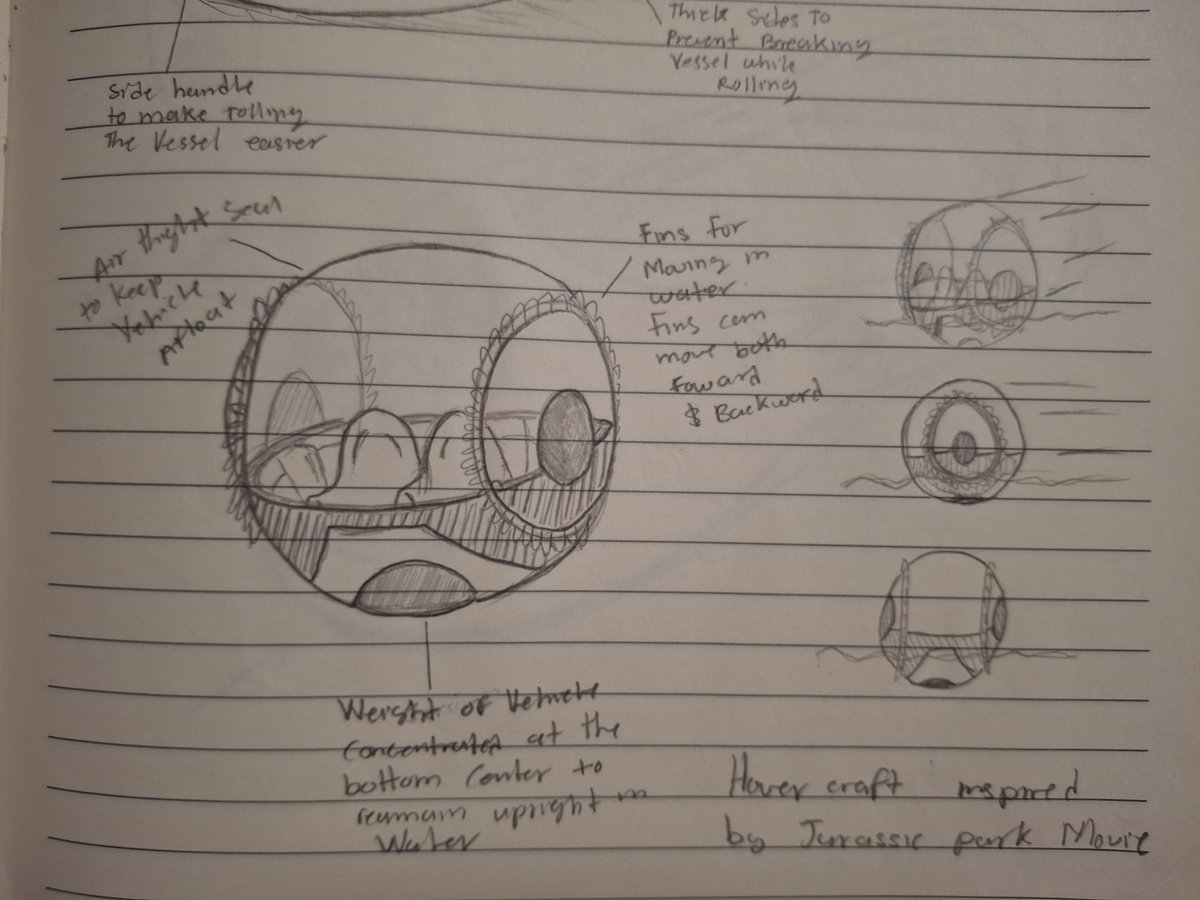 Thick Sides To
Prevent Breaking
Vessel while
Rolling
Side handle
to make rolling
The Vessel easier
Air thight Seal
to keep
Vehicle
Afloat
Fins For
Moving in
water.
Fins can
move both
Foward
$ Backword
Weight of Vehicle
Concentrated at the
bottom Center to
remain upright in
Water
Hover craft inspired
by Jurassic park Movie